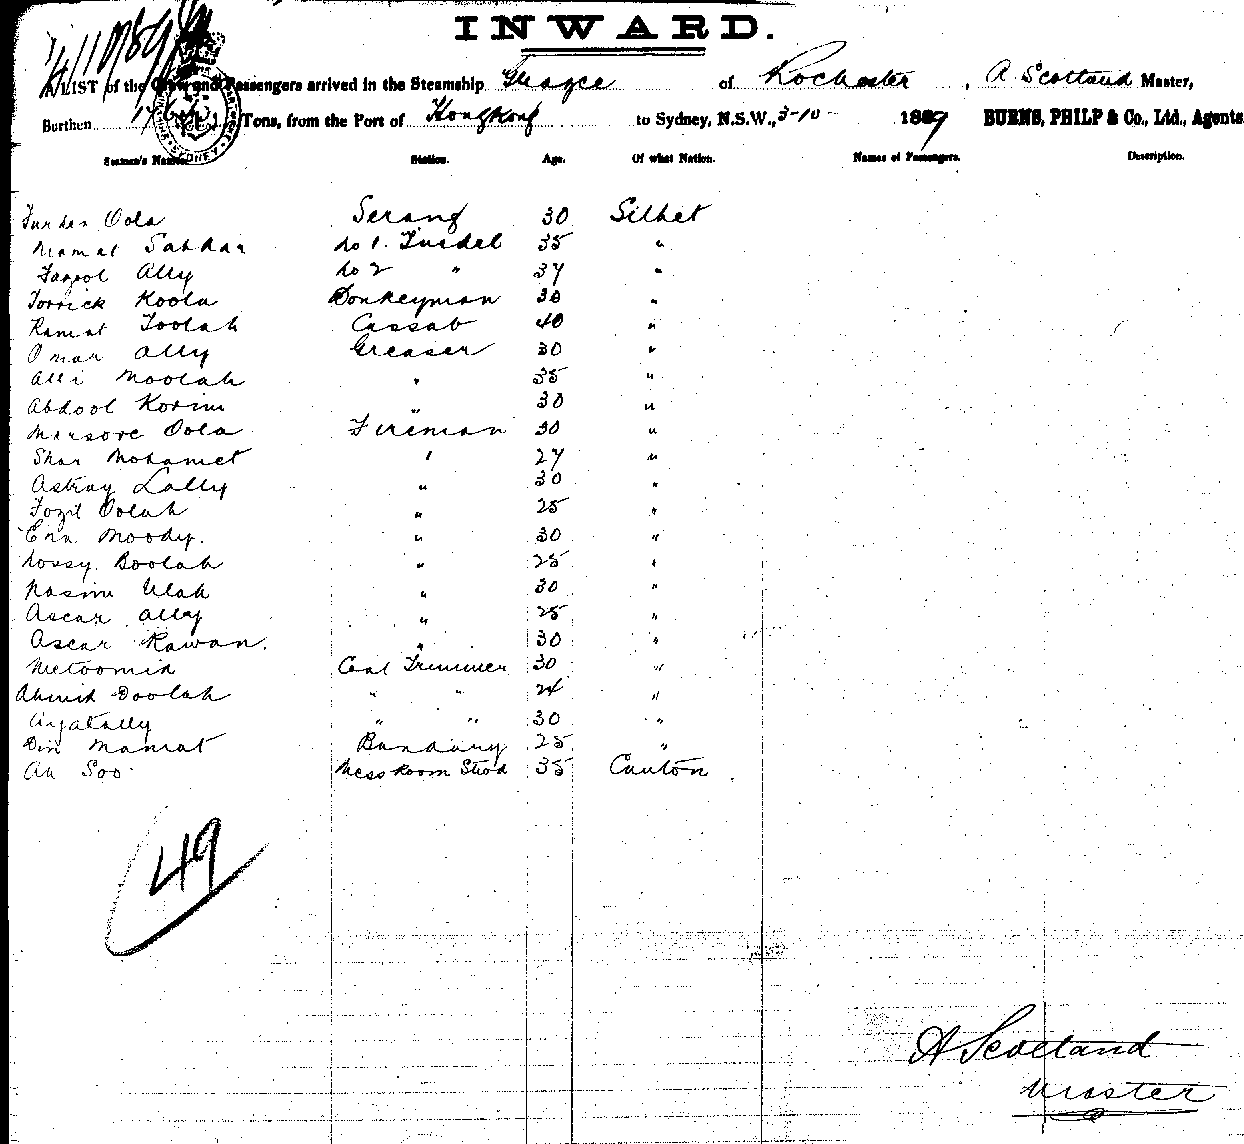 INWARD.
A LIST of the Crew and Passengers arrived in the Steamship of Rochester, A Scotland Master,
Burthen Tons, from the Port of HongKong to Sydney, N.S.W., 3-10- 1889 BURNS, PHILP & Co., Ltd., Agents
Seamen's Names. Station. Age. Of what Nation. Names of Passengers. Description.
Oola Serang 30 Silhet
Mamat No 1. Tindel 35 "
Ally No 2 " 37 "
Torrick Koola Donkeyman 30 "
Ramat Toolah Cassab 40 "
Omar Ally Greaser 30 "
Alli Moolah " 35 "
Abdool Korim " 30 "
Marsore Oola Fireman 30 "
Shar Mohamet " 27 "
Askay Lally " 30 "
Fozil Oolah " 25 "
Moody. " 30 "
Boolah " 25 "
Nasim Ulah " 30 "
Ascar Ally " 25 "
Ascar Rawan. " 30 "
Metoomid Coal Trimmer 30 "
Doolah " " 24 "
" " 30 "
Din Mamat Bandary 25 "
Ah Soo Mess Room Stwd 35 Canton
49
A Scotland
Master